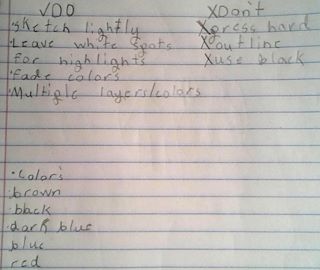 √DO
·sketch lightly
·Leave white spots
for highlights
·fade colors
·Multiple layers/colors
XDon't
Xpress hard
Xoutline
Xuse black
·colors
·brown
·black
·dark blue
blue
red